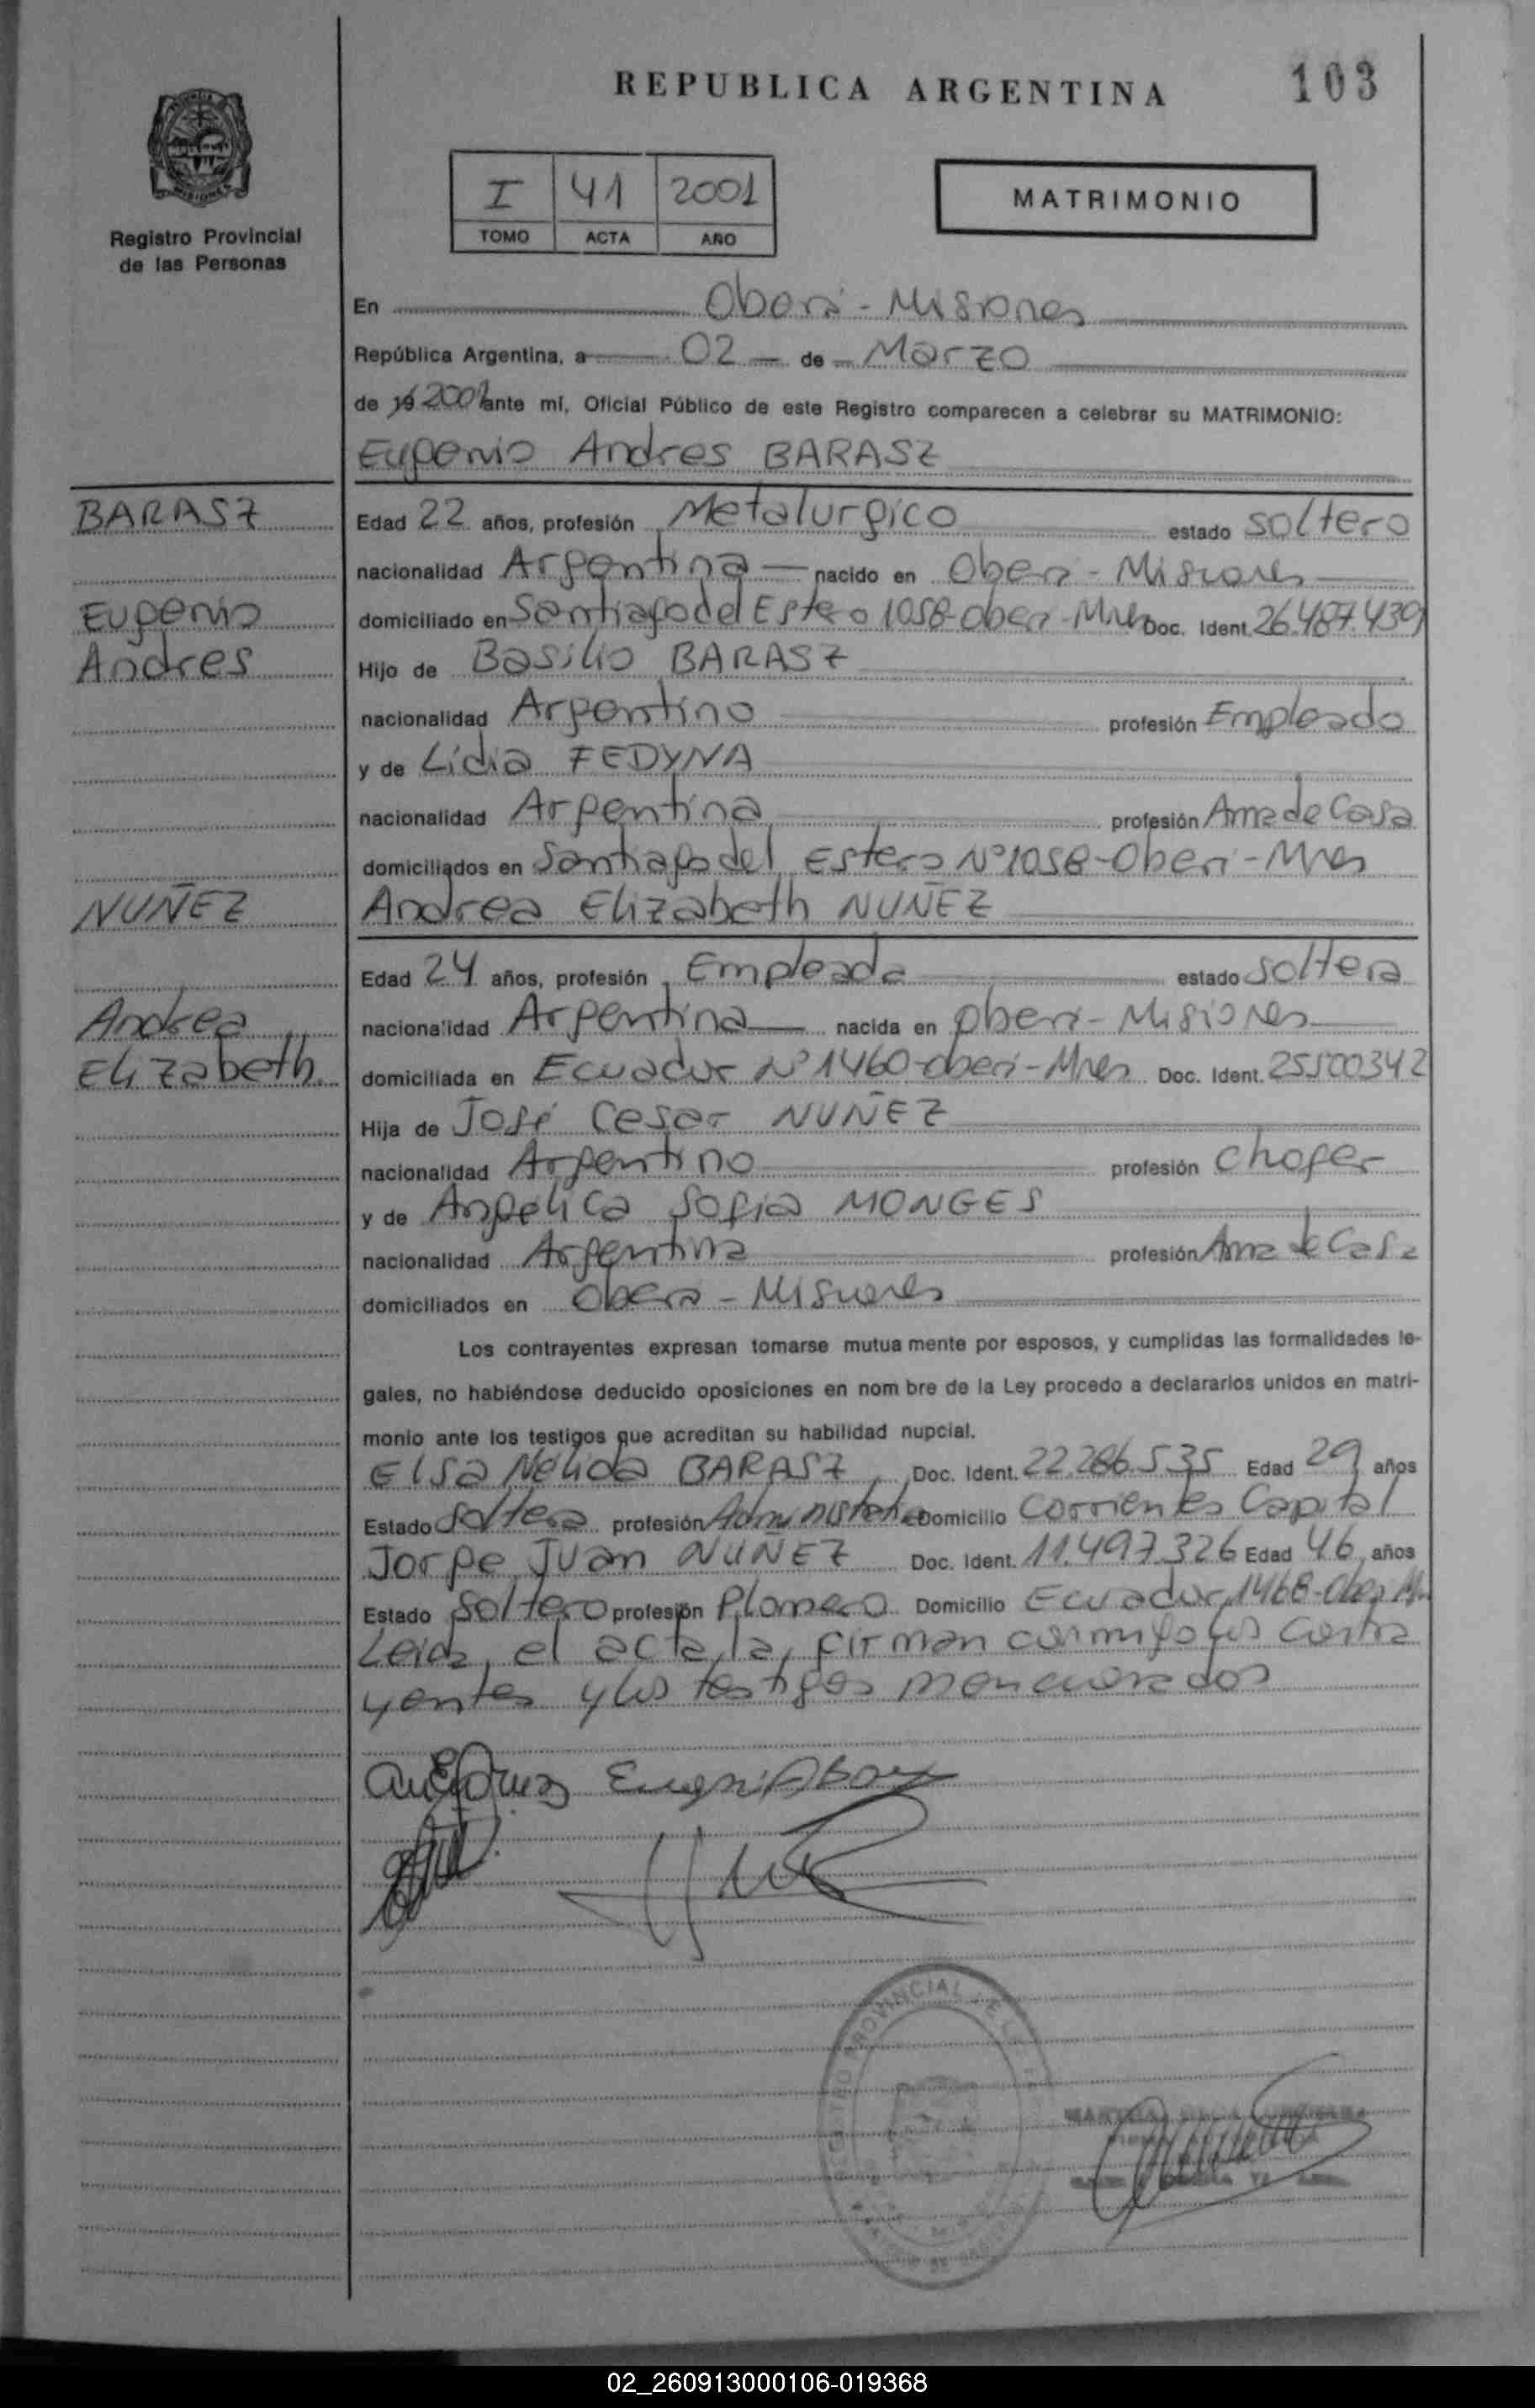 REPUBLICA ARGENTINA
103
Registro Provincial
de las Personas
I 41 2001
TOMO ACTA AÑO
MATRIMONIO
En Oberá - Misiones
República Argentina, a 02 de Marzo
de 19 2001 ante mí, Oficial Público de este Registro comparecen a celebrar su MATRIMONIO:
Eugenio Andres BARASZ
BARASZ
Eugenio
Andres
Edad 22 años, profesión Metalurgico estado soltero
nacionalidad Argentina nacido en Oberá - Misiones
domiciliado en Santiago del Estero 1058-Oberá-Mnes Doc. Ident. 26.487.439
Hijo de Basilio BARASZ
nacionalidad Argentino profesión Empleado
y de Lidia FEDYNA
nacionalidad Argentina profesión Ama de Casa
domiciliados en Santiago del Estero Nº 1058-Oberá-Mnes
NUÑEZ
Andrea
Elizabeth
Andrea Elizabeth NUÑEZ
Edad 24 años, profesión Empleada estado soltera
nacionalidad Argentina nacida en Oberá - Misiones
domiciliada en Ecuador Nº 1460-Oberá-Mnes Doc. Ident. 25500342
Hija de José Cesar NUÑEZ
nacionalidad Argentino profesión Chofer
y de Angélica Sofia MONGES
nacionalidad Argentina profesión Ama de Casa
domiciliados en Oberá - Misiones
Los contrayentes expresan tomarse mutua mente por esposos, y cumplidas las formalidades le-
gales, no habiéndose deducido oposiciones en nom bre de la Ley procedo a declararlos unidos en matri-
monio ante los testigos que acreditan su habilidad nupcial.
Elsa Nélida BARASZ Doc. Ident. 22.286.535 Edad 29 años
Estado Soltera profesión Domicilio Corrientes Capital
Jorge Juan NUÑEZ Doc. Ident. 11.497.326 Edad 46 años
Estado Soltero profesión Plomero Domicilio Ecuador 1468-Oberá
Leida el acta, la firman conmigo los contra
yentes y los testigos mencionados
02_260913000106-019368